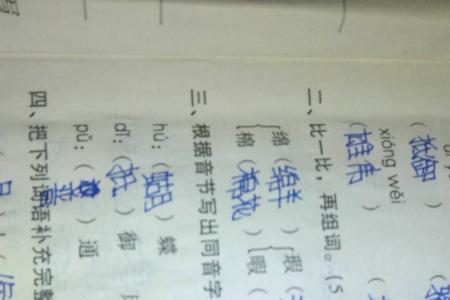 (抵御)
xióng wěi
(雄伟)
二、比一比，再组词。(5
绵(绵羊) 瑕(
棉(棉花) 暇(
三、根据音节写出同音字
hú:(蝴)蝶
dǐ:(抵)御
pǔ:( )通
四、把下列词语补充完整